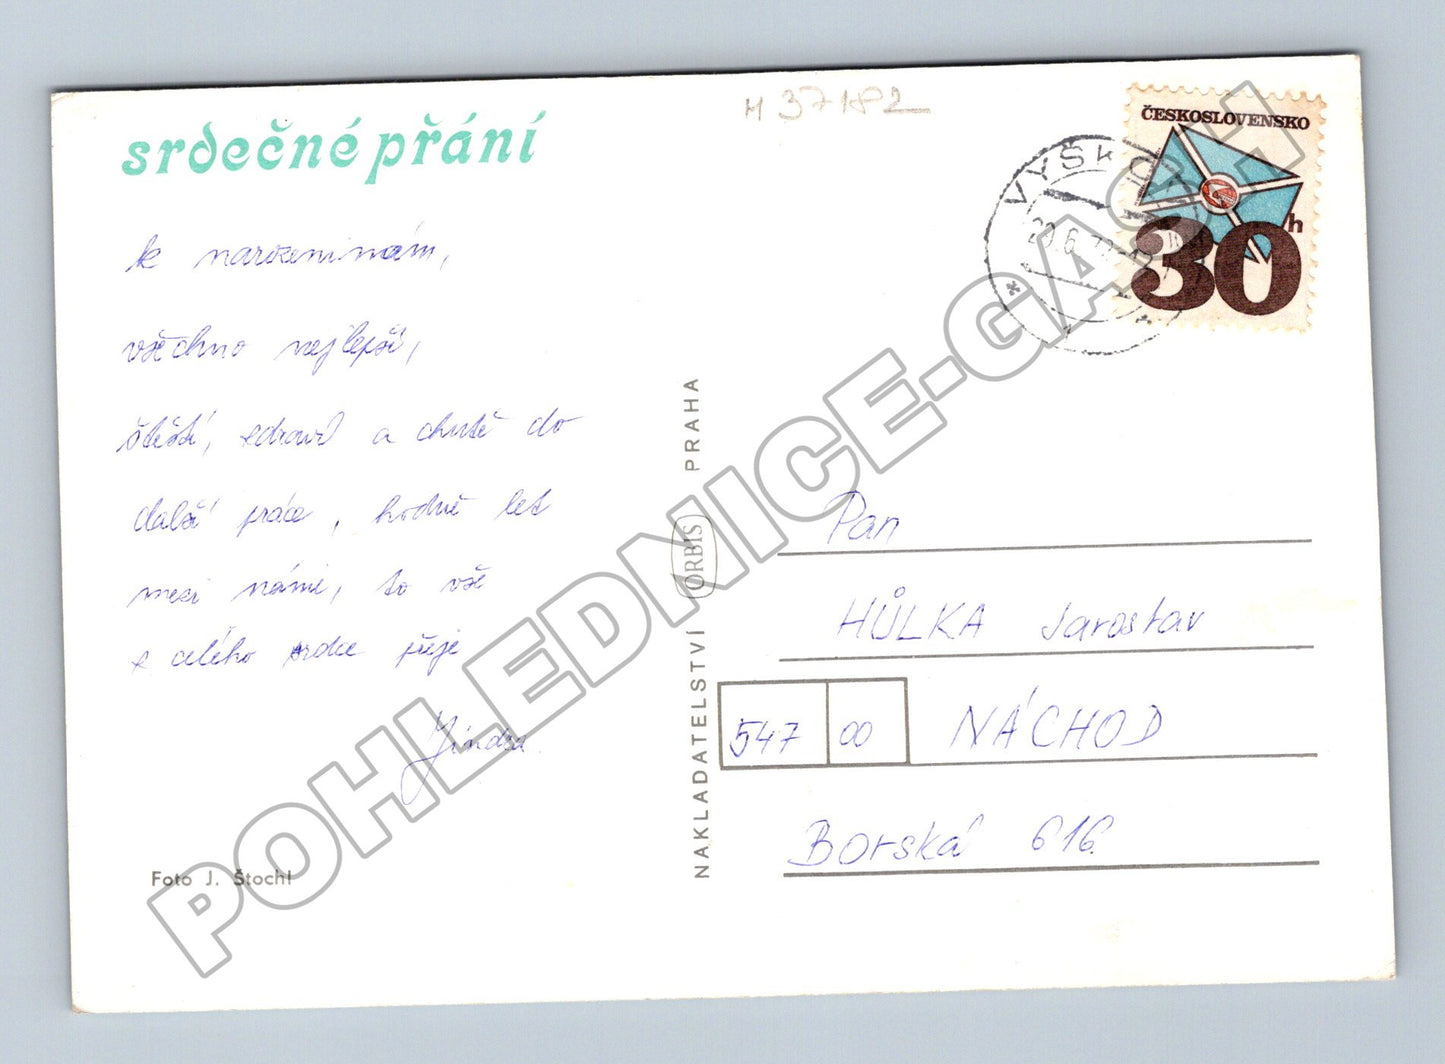 srdečné přání
k narozeninám,
všechno nejlepší,
štěstí, zdraví a chutě do
další práce, hodně let
mezi námi, to vše
z celého srdce přeje
Jindra
Foto J. Štochl
NAKLADATELSTVÍ ORBIS PRAHA
H 37182
VYŠKO
20.6.
ČESKOSLOVENSKO
30h
Pan
HŮLKA Jaroslav
547 00 NÁCHOD
Borská 616
POHLEDNICE-GASH